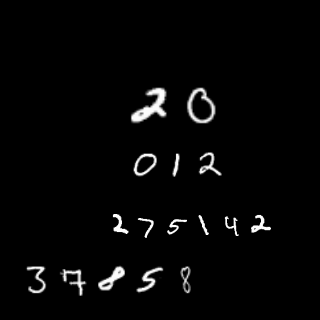 2 0
0 1 2
2 7 5 1 4 2
3 7 8 5 8